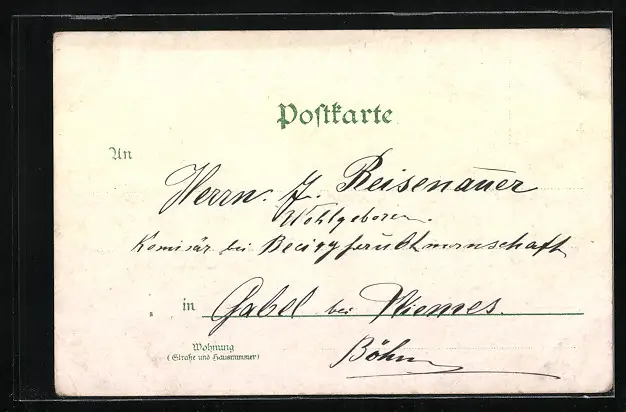 Postkarte
An
Herrn J. Reisenauer
Wohlgeboren.
Komisär bei
in Gabel bei Niemes.
Wohnung
(Straße und Hausnummer)
Böhm